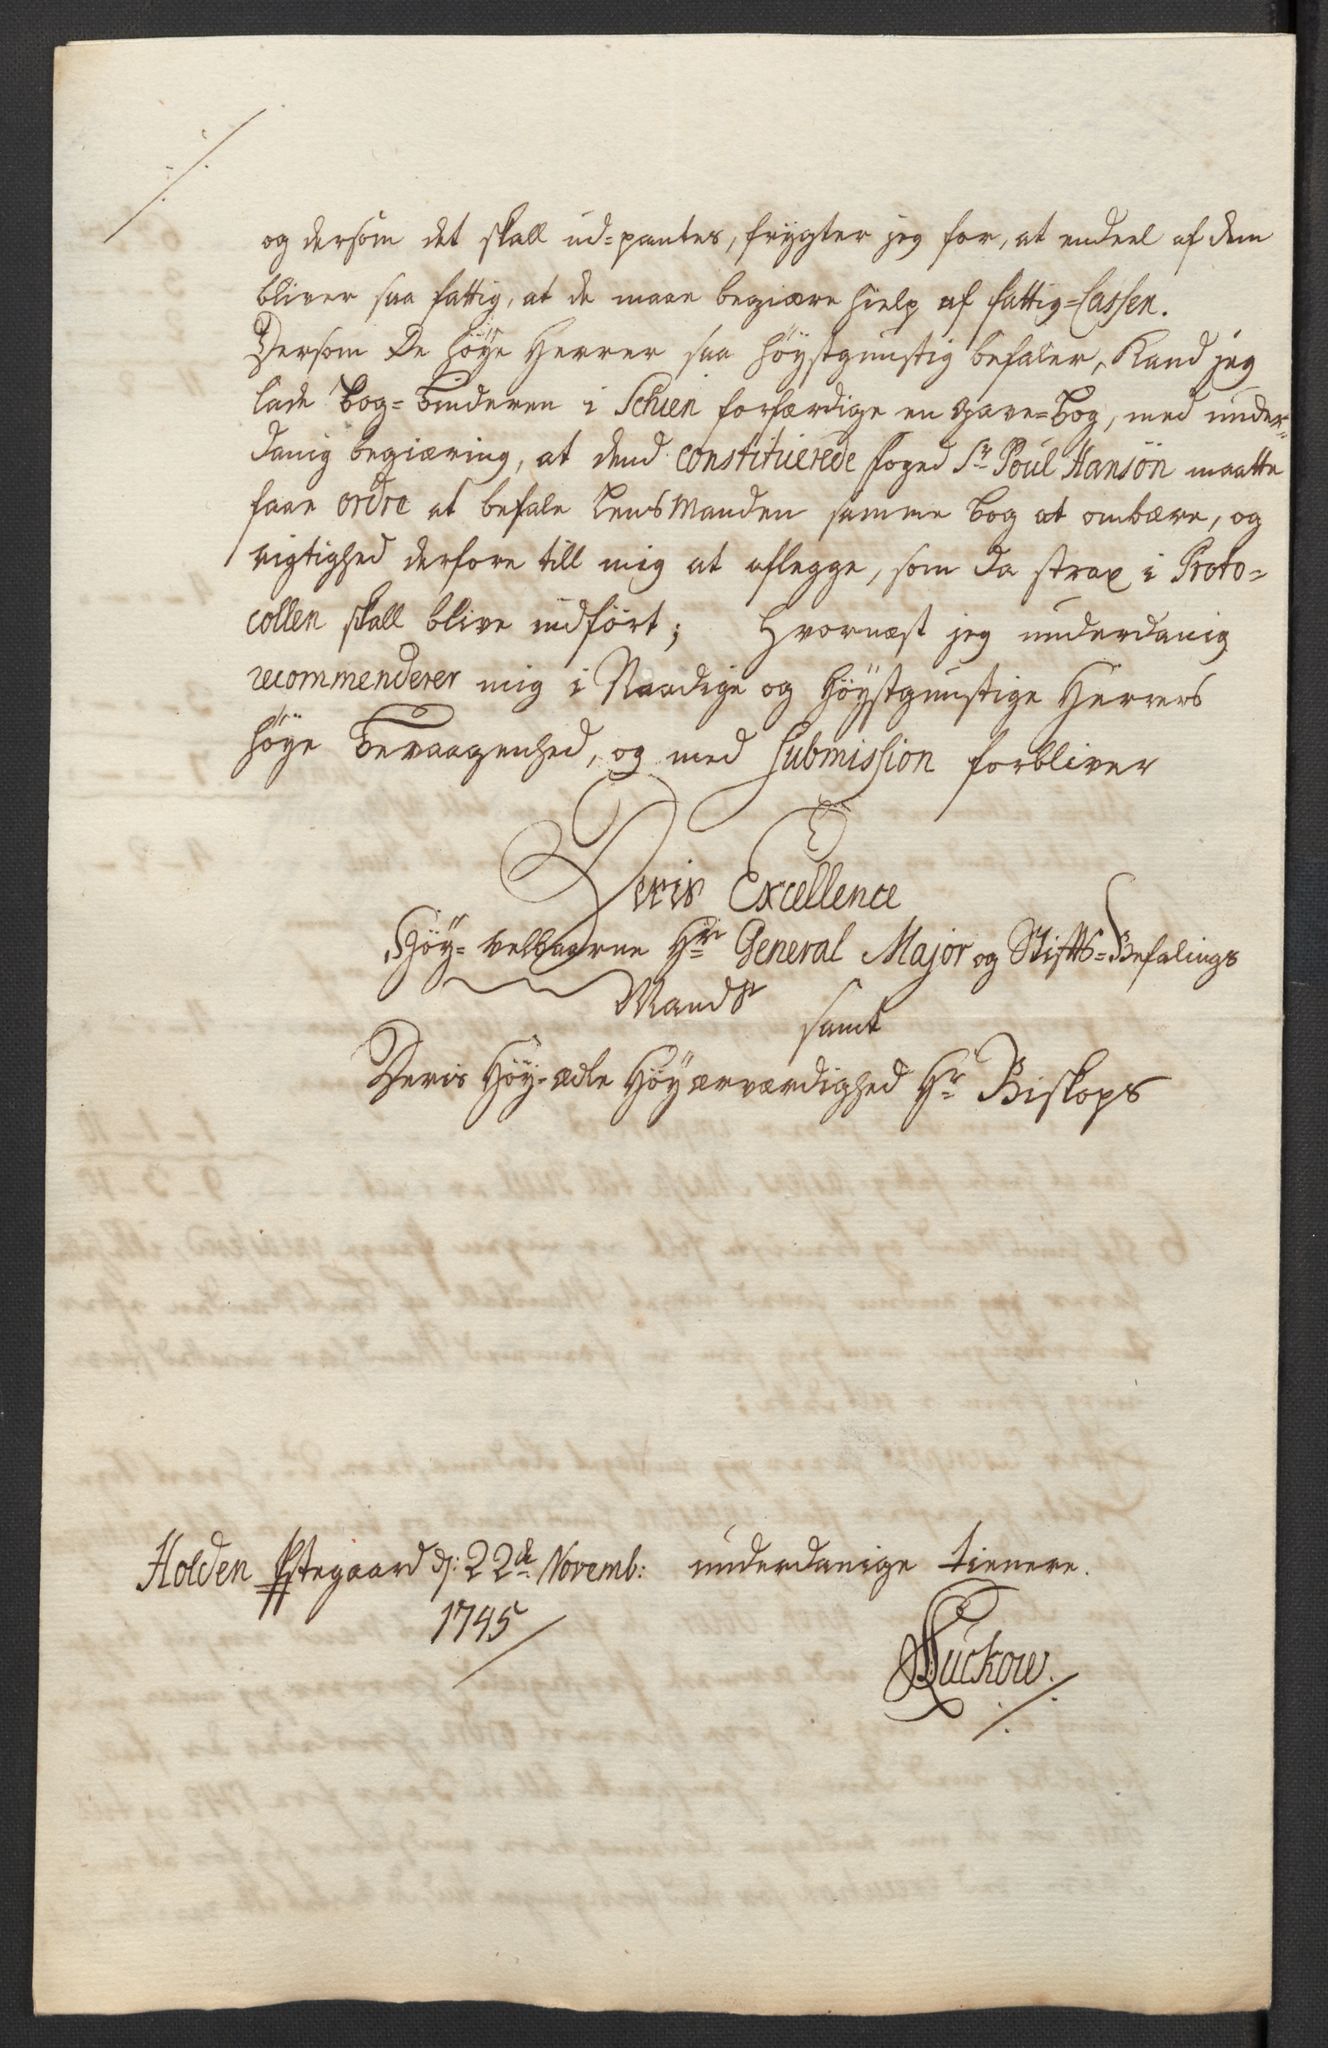 og dersom det skall ud=pantes, frygter jeg for, at endeel af dem
bliver saa fattig, at de maae begiære hielp af fattig=Cassen.
Dersom De høÿe Herrer saa höÿstgunstig befaler, Kand jeg
lade Bog=Binderen i Schien forfærdige en Gave=Bog, med under=
danig begiæring, at dend constituerede foged Sr Poul Hansön maatte
faae ordre at befale LensManden samme bog at ombære, og
rigtighed derfore till mig at aflegge, som da strax i Proto=
collen skall blive indfört; Hvornæst jeg underdanig
recommenderer mig i Naadige og Höÿstgunstige Herrers
höÿe Bevaagenhed, og med Submission forbliver
Deris Excellence
Höÿ=velbaarne Hr General Major og Stifts=Befalings
Mands
samt
Deris Höÿ=ædle Höÿærværdighed Hr Biskops
Holden Præstegaard d: 22de Novemb: underdanige tienere.
1745
Luckow.